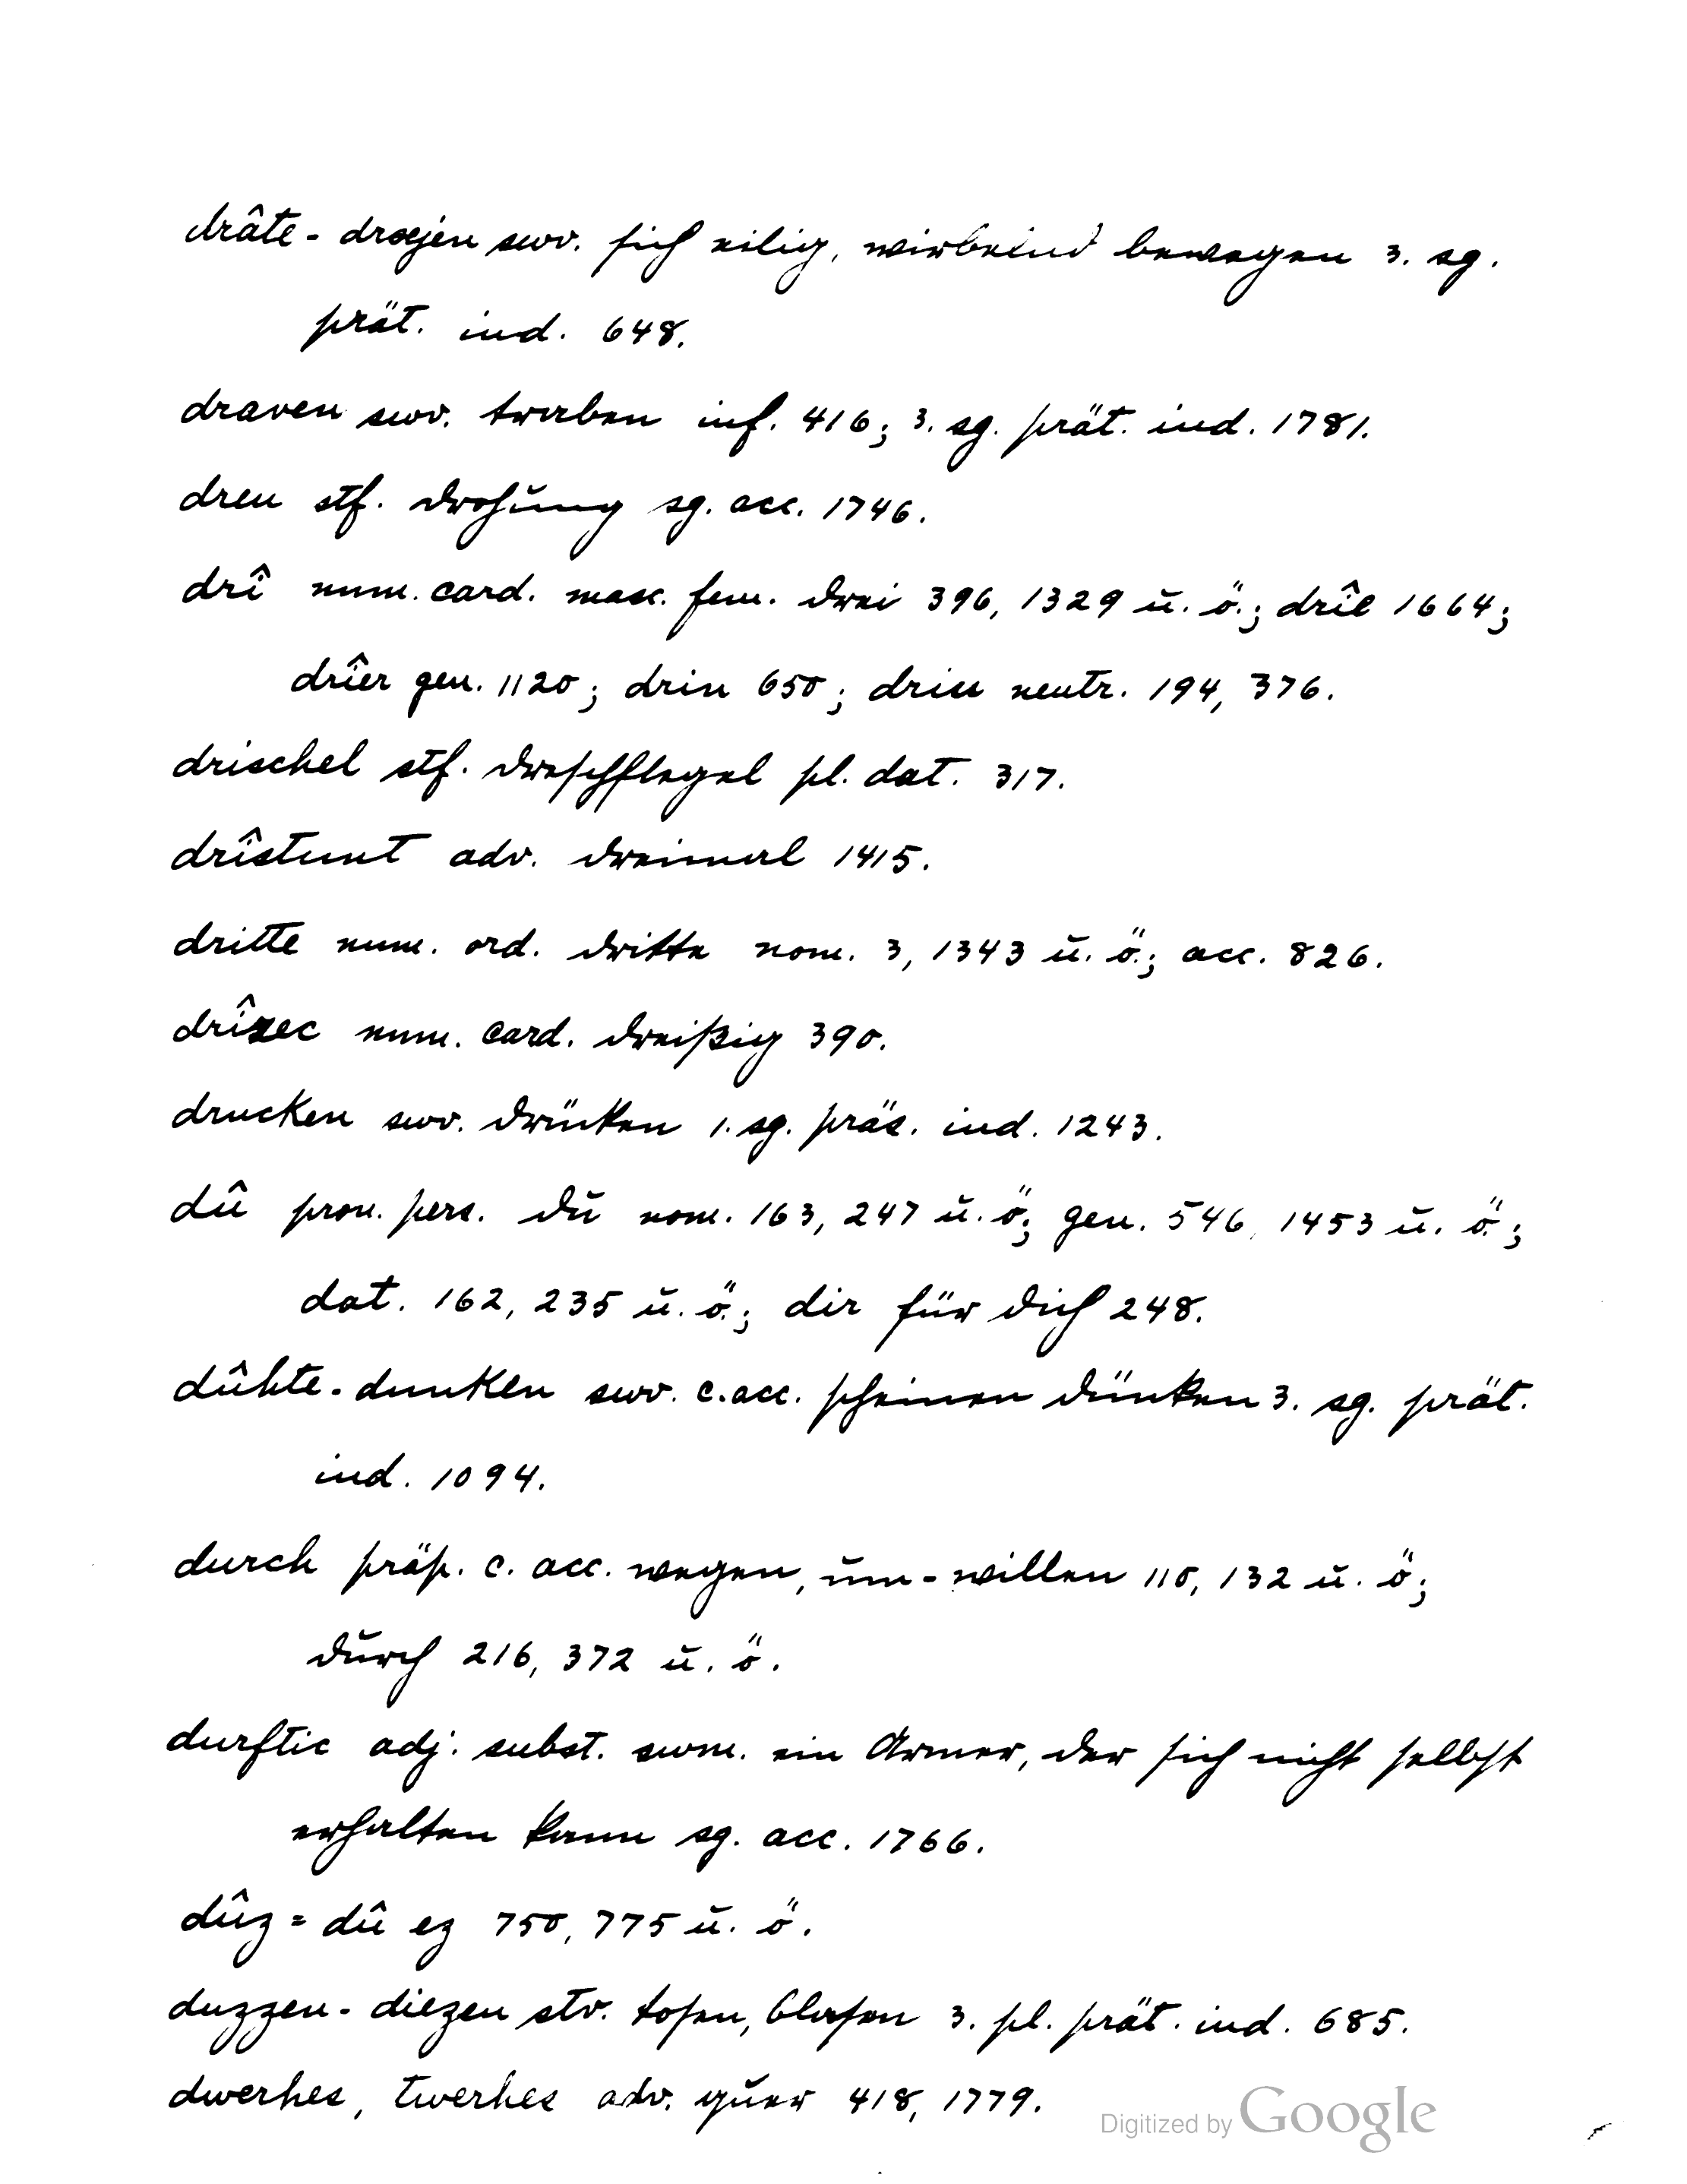 drâte - dræjen swv. sich eilig, wirbelnd bewegen 3. sg.
prät. ind. 648.
draven swv. traben inf. 416; 3. sg. prät. ind. 1781.
dreu stf. drohung sg. acc. 1746.
drî num. card. masc. fem. drei 396, 1329 u. ö.; drîe 1664;
drîer gen. 1120; drin 650; driu neutr. 194, 376.
drischel stf. dreschflegel pl. dat. 317.
drîstunt adv. dreimal 1415.
dritte num. ord. dritte nom. 3, 1343 u. ö.; acc. 826.
drîzec num. card. dreißig 390.
drucken swv. drücken 1. sg. präs. ind. 1243.
dû pron. pers. du nom. 163, 247 u. ö.; gen. 546, 1453 u. ö.;
dat. 162, 235 u. ö.; dir für dich 248.
dûhte - dunken swv. c. acc. scheinen dünken 3. sg. prät.
ind. 1094.
durch präp. c. acc. wegen, um - willen 110, 132 u. ö.;
durch 216, 372 u. ö.
durftic adj. subst. swm. ein Armer, der sich nicht selbst
erhalten kann sg. acc. 1766.
dûz = dû ez 750, 775 u. ö.
duzzen - diezen stv. tosen, blasen 3. pl. prät. ind. 685.
dwerhes, twerhes adv. quer 418, 1779.
Digitized by Google